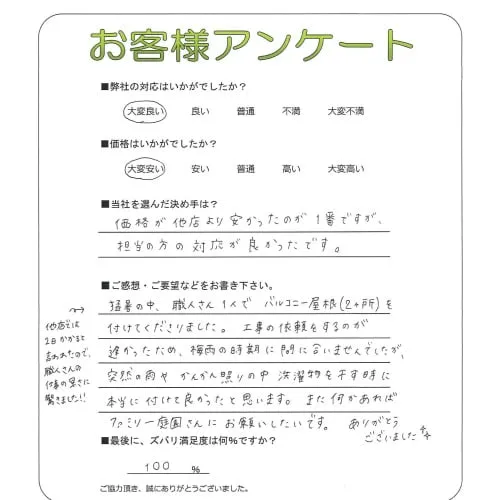 お客様アンケート
■弊社の対応はいかがでしたか?
大変良い 良い 普通 不満 大変不満
■価格はいかがでしたか?
大変安い 安い 普通 高い 大変高い
■当社を選んだ決め手は?
価格が他店より安かったのが1番ですが、
担当の方の対応が良かったです。
■ご感想・ご要望などをお書き下さい。
猛暑の中、職人さん1人で バルコニー屋根(2ヶ所)を
付けてくださりました。 工事の依頼をするのが
遅かったため、梅雨の時期に間に合いませんでしたが、
突然の雨や かんかん照りの中 洗濯物を干す時に
本当に付けて良かったと思います。 また何かあれば
ファミリー庭園さんに お願いしたいです。 ありがとう
ございました
他店では
2日かかると
言われたので、
職人さんの
仕事の早さに
驚きました!!
■最後に、ズバリ満足度は何%ですか?
100 %
ご協力頂き、誠にありがとうございました。